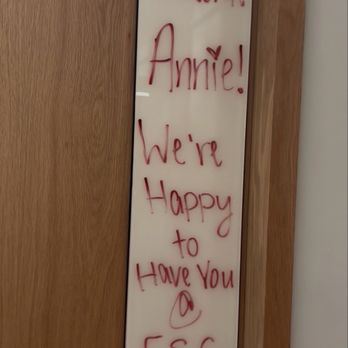 Annie!
We're
Happy
to
Have You
@